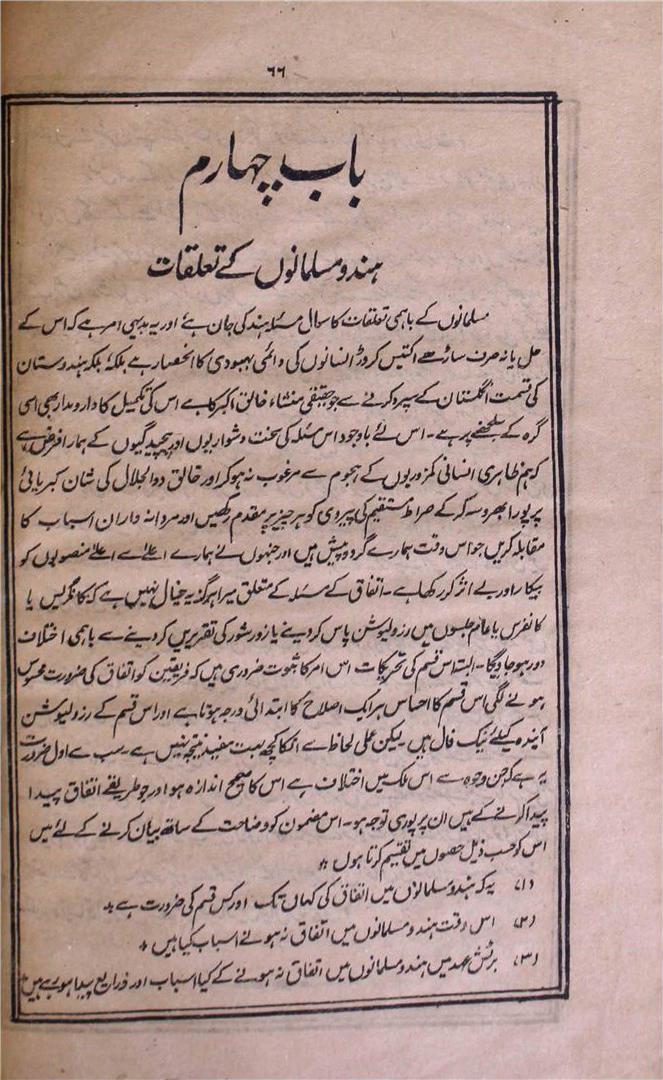 ۶۶
باب چہارم
ہندو مسلمانوں کے تعلقات
مسلمانوں کے باہمی تعلقات کا سوال مسئلہ ہند کی جان ہے اور یہ بدیہی امر ہے کہ اس کے
حل پا نہ صرف ساڑھے اکتیس کروڑ انسانوں کی دائمی بہبودی کا انحصار ہے بلکہ بلکہ ہندوستان
کی قسمت انگلستان کے سپرد کرنے سے جو حقیقی منشاء خالق اکبر کا ہے اس کی تکمیل کا دارومدار بھی اسی
گرہ کے سلجھنے پر ہے۔ اس لئے باوجود اس مسئلہ کی سخت دشواریوں اور پیچیدگیوں کے ہمارا فرض ہے
کہ ہم ظاہری انسانی کمزوریوں کے ہجوم سے مرغوب نہ ہو کر اور خالق ذوالجلال کی شان کبریائی
پر پورا بھروسہ کر کے صراط مستقیم کی پیروی کو ہر چیز پر مقدم رکھیں اور مردانہ وار ان اسباب کا
مقابلہ کریں جو اس وقت ہمارے گرد و پیش ہیں اور جنہوں نے ہمارے اعلےٰ سے اعلےٰ منصوبوں کو
بیکار اور بے اثر کر رکھا ہے۔ اتفاق کے مسئلہ کے متعلق میرا ہرگز یہ خیال نہیں ہے کہ کانگریس یا
کانفرس یا عام جلسوں میں رزولیوشن پاس کر دینے یا زور شور کی تقریریں کر دینے سے باہمی اختلاف
دور ہو جاویگا۔ البتہ اس قسم کی تحریکات اس امر کا ثبوت ضروری ہیں کہ فریقین کو اتفاق کی ضرورت محسوس
ہونے لگی اس قسم کا احساس ہر ایک اصلاح کا ابتدائی درجہ ہوتا ہے اور اس قسم کے رزولیوشن
آیندہ کیلئے نیک فال ہیں لیکن عملی لحاظ سے انکا کچھ بہت مفید نتیجہ نہیں ہے۔ سب سے اول ضرورت
یہ ہے کہ جن وجوہ سے اس ملک میں اختلاف ہے اس کا صحیح اندازہ ہو اور جو طریقے اتفاق پیدا
پیدا کرنے کے ہیں ان پر پوری توجہ ہو۔ اس مضمون کو وضاحت کے ساتھ بیان کرنے کے لئے میں
اس کو حسب ذیل حصوں میں تقسیم کرتا ہوں
(۱) یہ کہ ہندو مسلمانوں میں اتفاق کی کہاں تک اور کس قسم کی ضرورت ہے
(۲) اس وقت ہندو مسلمانوں میں اتفاق نہ ہونے اسباب کیا ہیں
(۳) برٹش عہد میں ہندو مسلمانوں میں اتفاق نہ ہونے کے کیا اسباب اور ذرایع پیدا ہوئے ہیں